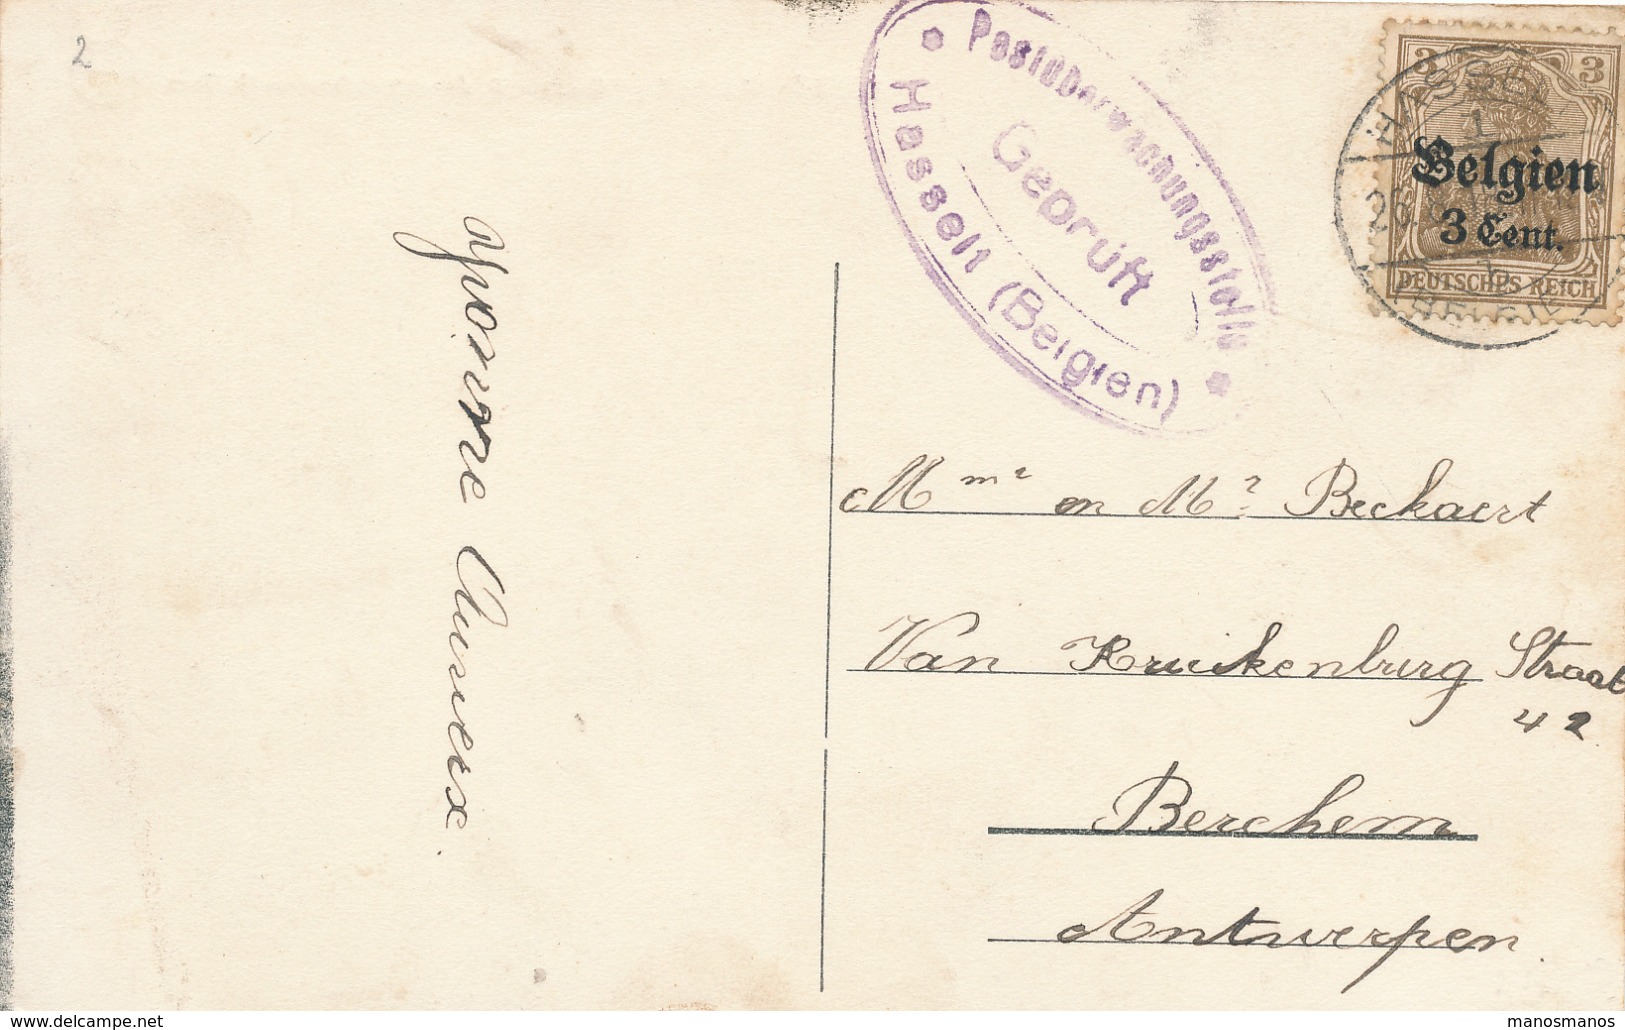 2
Postüberwachungsstelle
Geprüft
Hasselt (Belgien)
3 3
HASSELT
1
Belgien
3 Cent.
DEUTSCHES REICH
Yvonne
Mme en Mr Beckaert
Van Kruikenburg Straat
42
Berchem
Antwerpen
www.delcampe.net
manosmanos